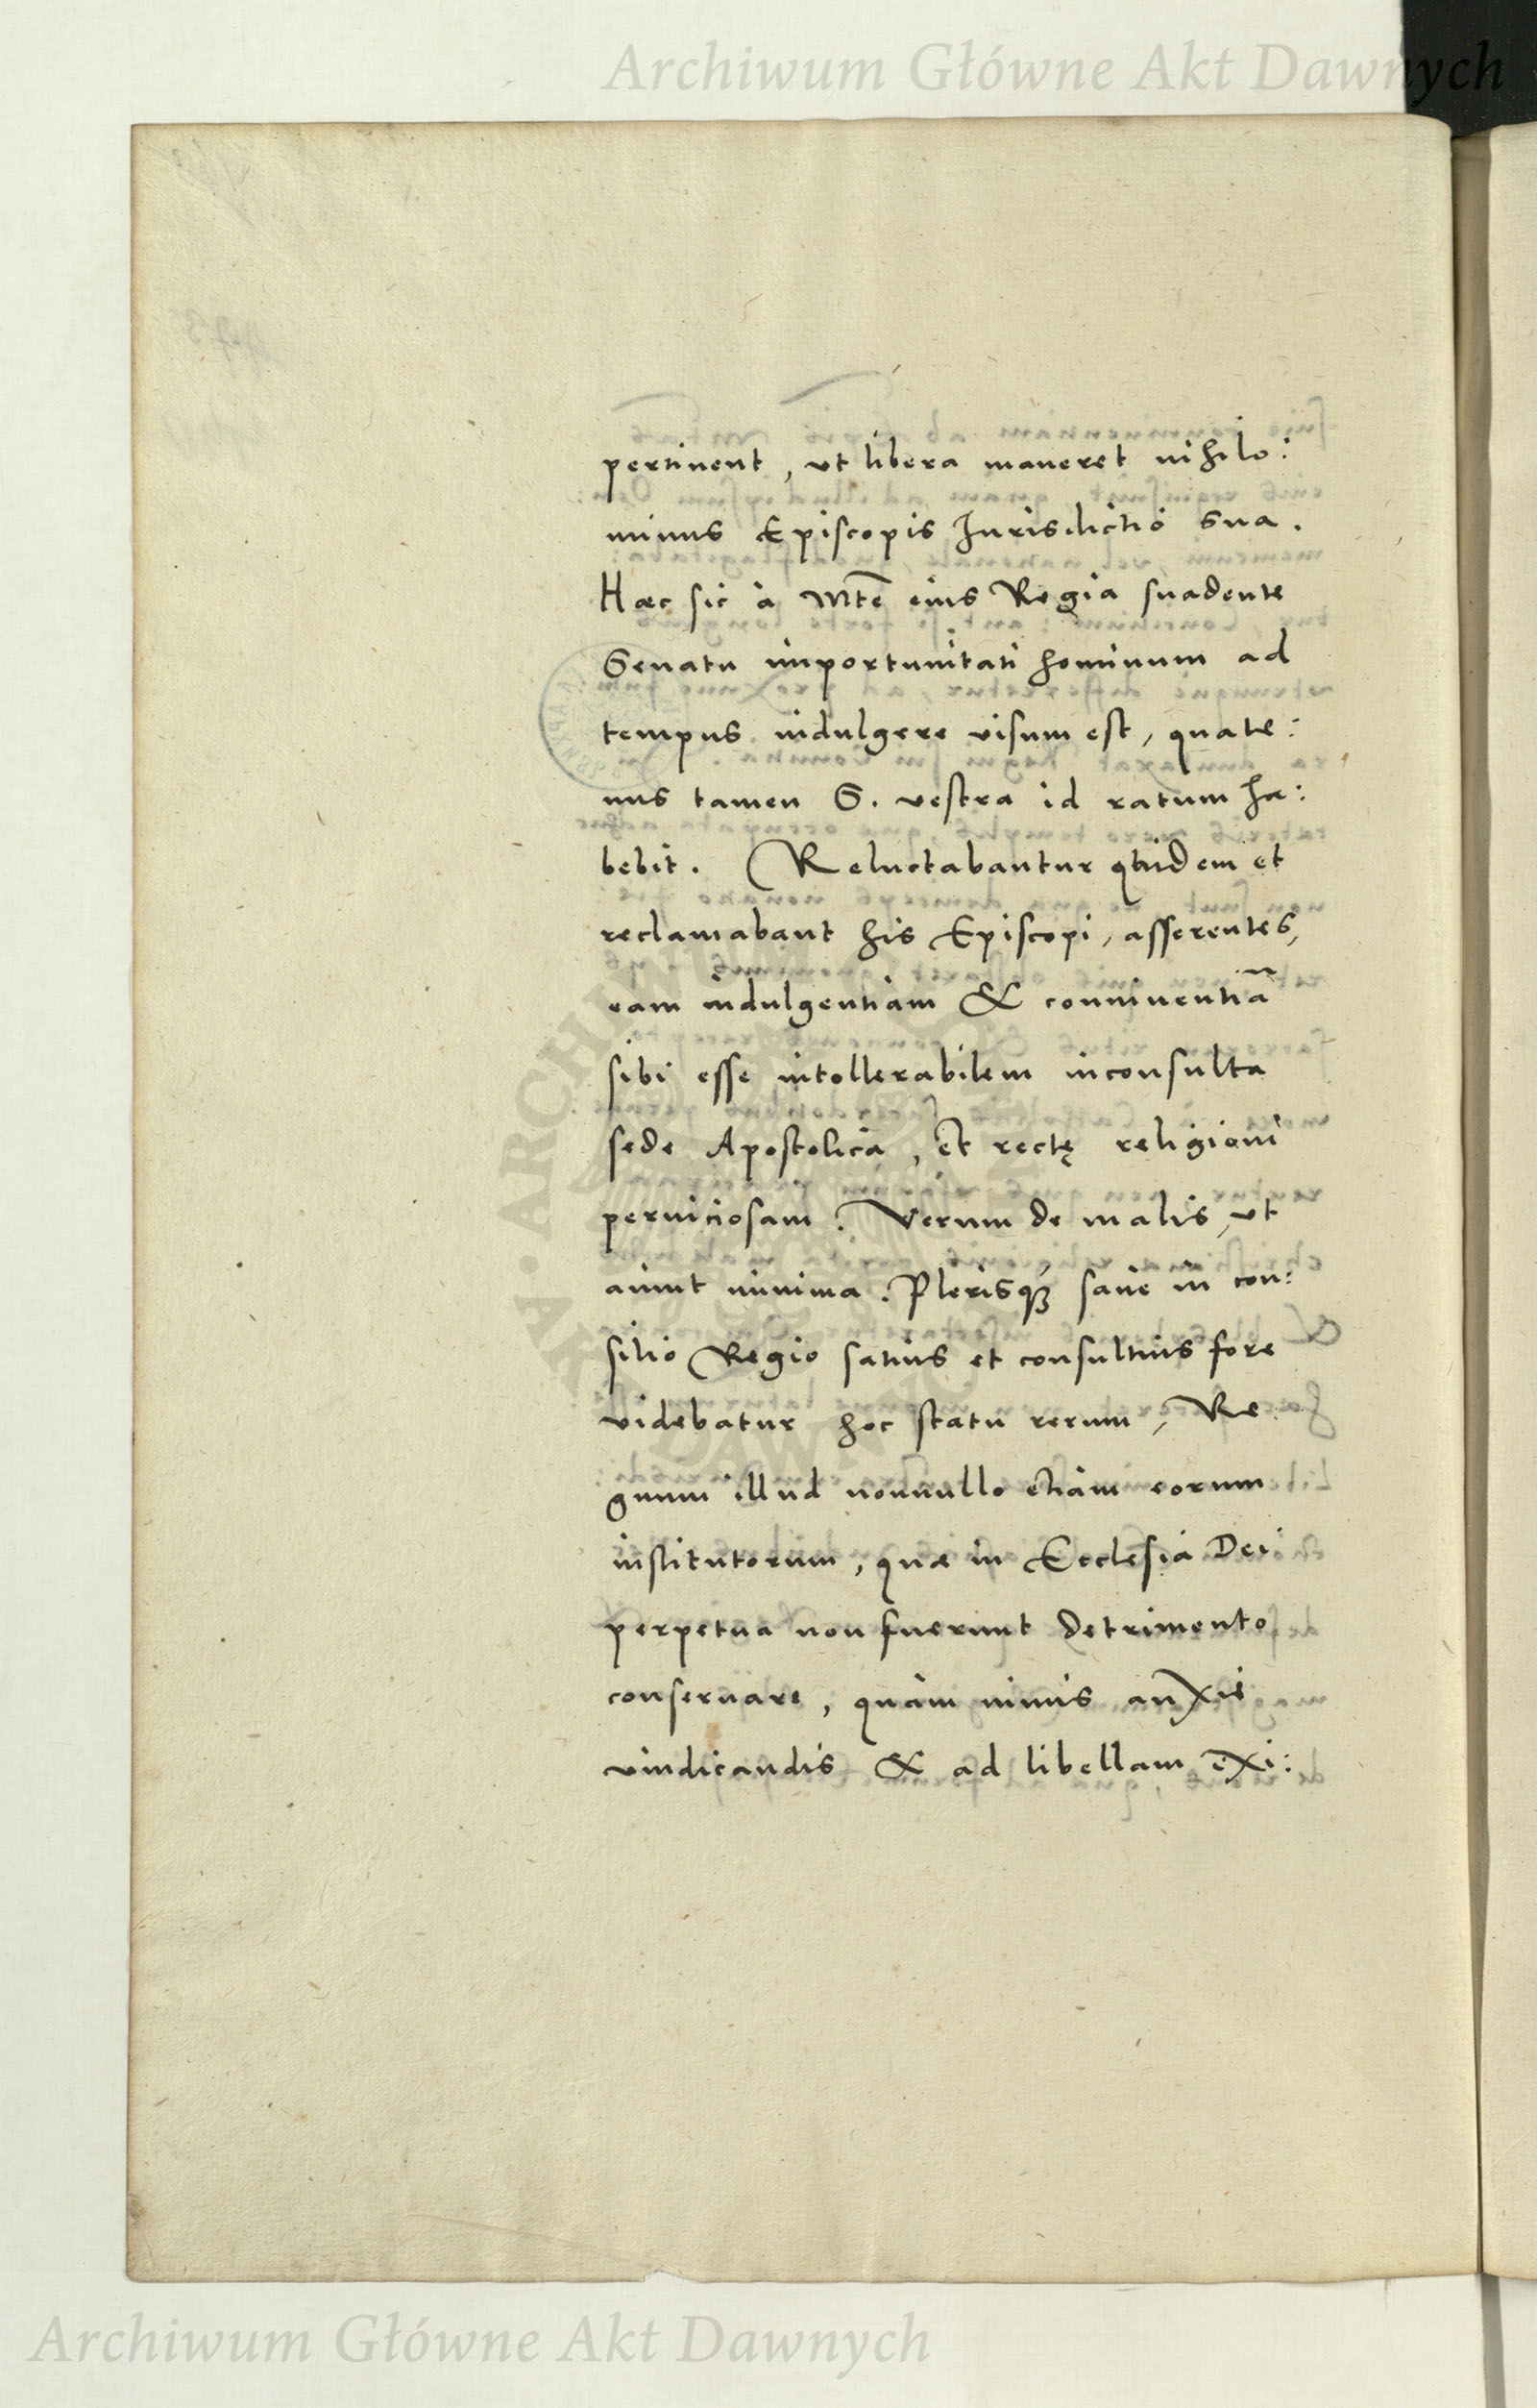 Archiwum Główne Akt Dawnych
pertinent, ut libera maneret nihilo:
minus Episcopis Jurisdictio sua.
Haec sic à Mtē eius Regia suadente
Senatu importunitati hominum ad
tempus indulgere visum est, quate:
nus tamen S. vestra id ratum ha:
bebit. Reluctabantur quidem et
reclamabant his Episcopi, asserentes,
eam indulgentiam & conniventiā
sibi esse intollerabilem inconsulta
sede Apostolica, Et rectę religioni
perniciosam. Verum de malis, ut
aiunt minima. Plerisq́ꝫ sane in con:
silio Regio satius et consultius fore
videbatur hoc statu rerum, Re
gnum illud nonnullo etiam eorum
institutorum, quae in Ecclesia Dei
perpetua non fuerunt detrimento
conservare, quàm nimis anxiè
vindicandis & ad libellam exi:
Archiwum Główne Akt Dawnych